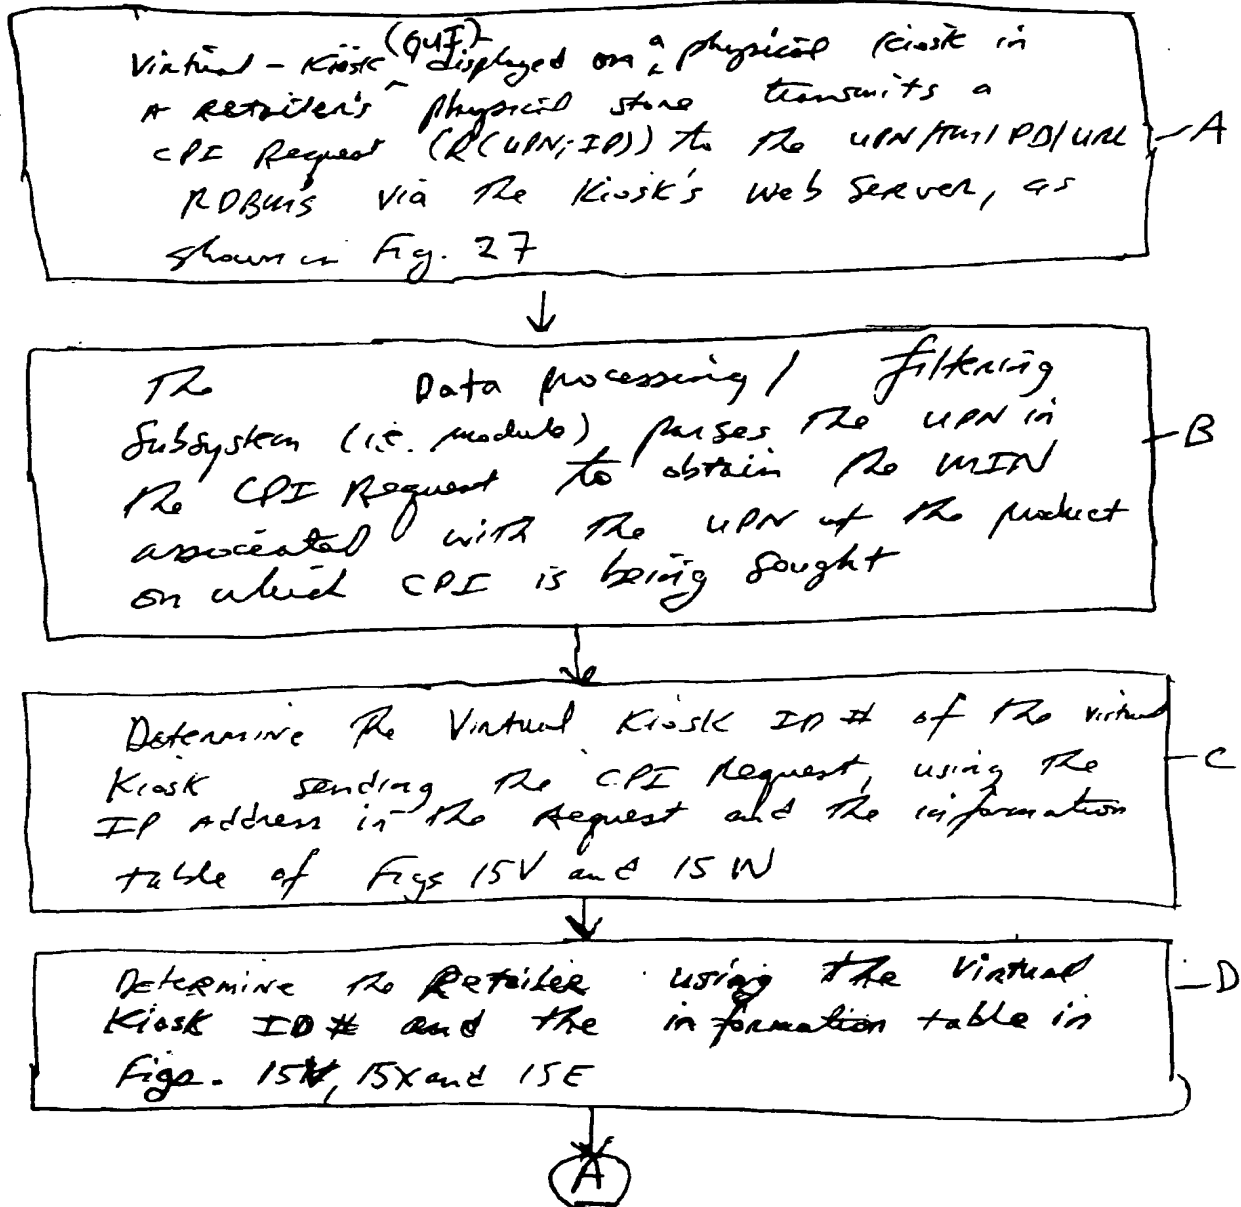 Virtual - Kiosk (GUI) displayed on a physical kiosk in
A Retailer's physical store transmits a
CPI Request (R(UPN; IP)) to the UPN/TM/PD/URL - A
RDBMS via the Kiosk's web server, as
shown in Fig. 27
The Data processing / filtering
Subsystem (i.e. module) parses the UPN in - B
the CPI Request to obtain the MIN
associated with the UPN of the product
on which CPI is being sought
Determine the Virtual Kiosk ID # of the virtual
Kiosk sending the CPI Request, using the - C
IP Address in the Request and the information
table of Figs 15V and 15W
Determine the Retailer using the Virtual - D
Kiosk ID # and the information table in
Figs. 15V, 15X and 15E
A